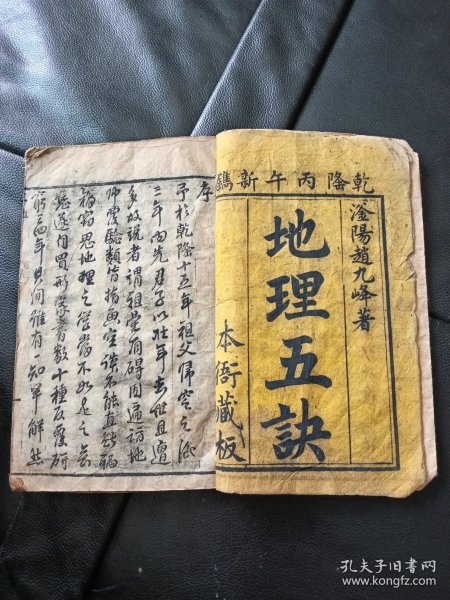 乾隆丙午新鐫
滏陽趙九峰著
地理五訣
本衙藏板
序
予於乾隆十五年祖父歸窆之後
三年內先君子以壯年去世且遭
多故說者謂祖塋有碍因遍訪地
師雲聽類皆指畫空談不能直敘禍
福窃思地理之學當不如是之
遂自買形家書數十種反覆研
窮四年其間雖有一知半解然
孔夫子旧书网
www.kongfz.com